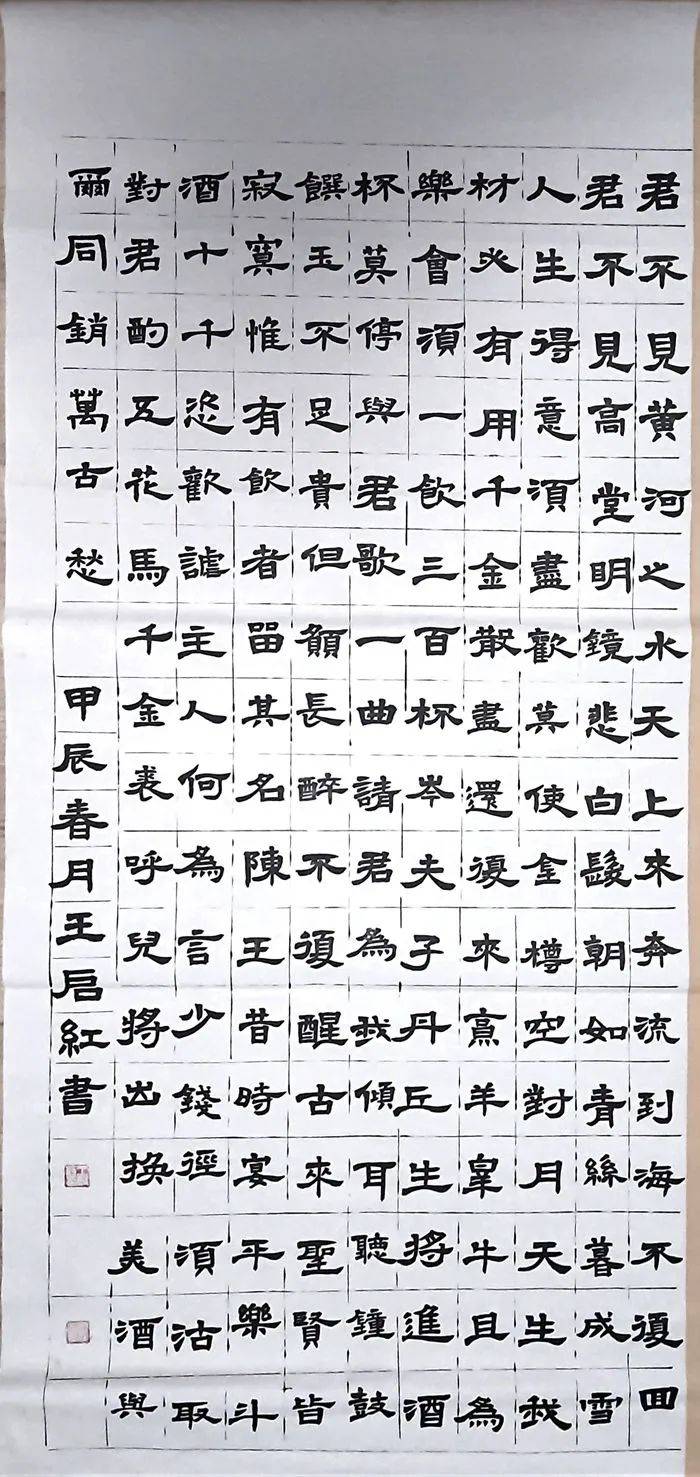 君不見黄河之水天上來奔流到海不復回
君不見高堂明鏡悲白髮朝如青絲暮成雪
人生得意須盡歡莫使金樽空對月天生我
材必有用千金散盡還復來烹羊宰牛且為
樂會須一飲三百杯岑夫子丹丘生將進酒
杯莫停與君歌一曲請君為我傾耳聽鐘鼓
饌玉不足貴但願長醉不復醒古來聖賢皆
寂寞惟有飲者留其名陳王昔時宴平樂斗
酒十千恣歡謔主人何為言少錢徑須沽取
對君酌五花馬千金裘呼兒將出換美酒與
爾同銷萬古愁 甲辰春月王启紅書